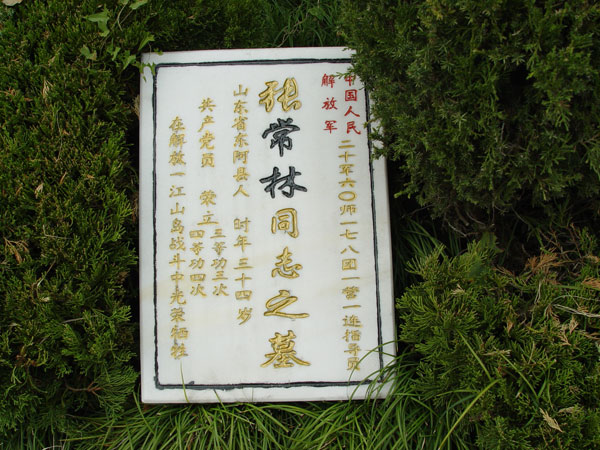 中国人民解放军二十军六〇师一七八团一营一连指导员
张常林同志之墓
山东省东阿县人 时年三十四岁
共产党员 荣立三等功三次四等功四次
在解放一江山岛战斗中光荣牺牲